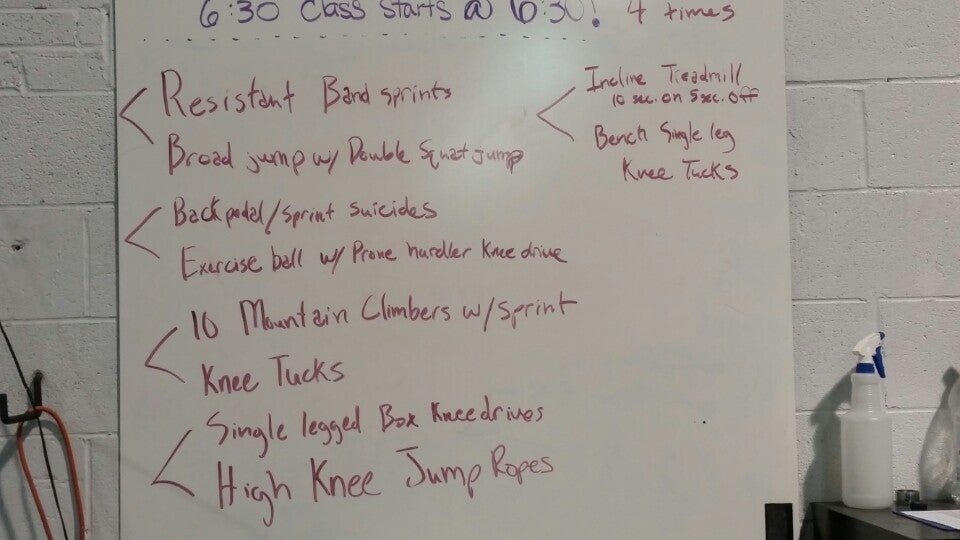 6:30 Class starts @ 6:30! 4 times
Resistant Band sprints
Broad jump w/ Double Squat jump
Backpedal/sprint suicides
Exercise ball w/ Prone hurdler Knee drive
10 Mountain Climbers w/ sprint
Knee Tucks
Single legged Box Kneedrives
High Knee Jump Ropes
Incline Treadmill
10 sec. on 5 sec. off
Bench Single leg
Knee Tucks